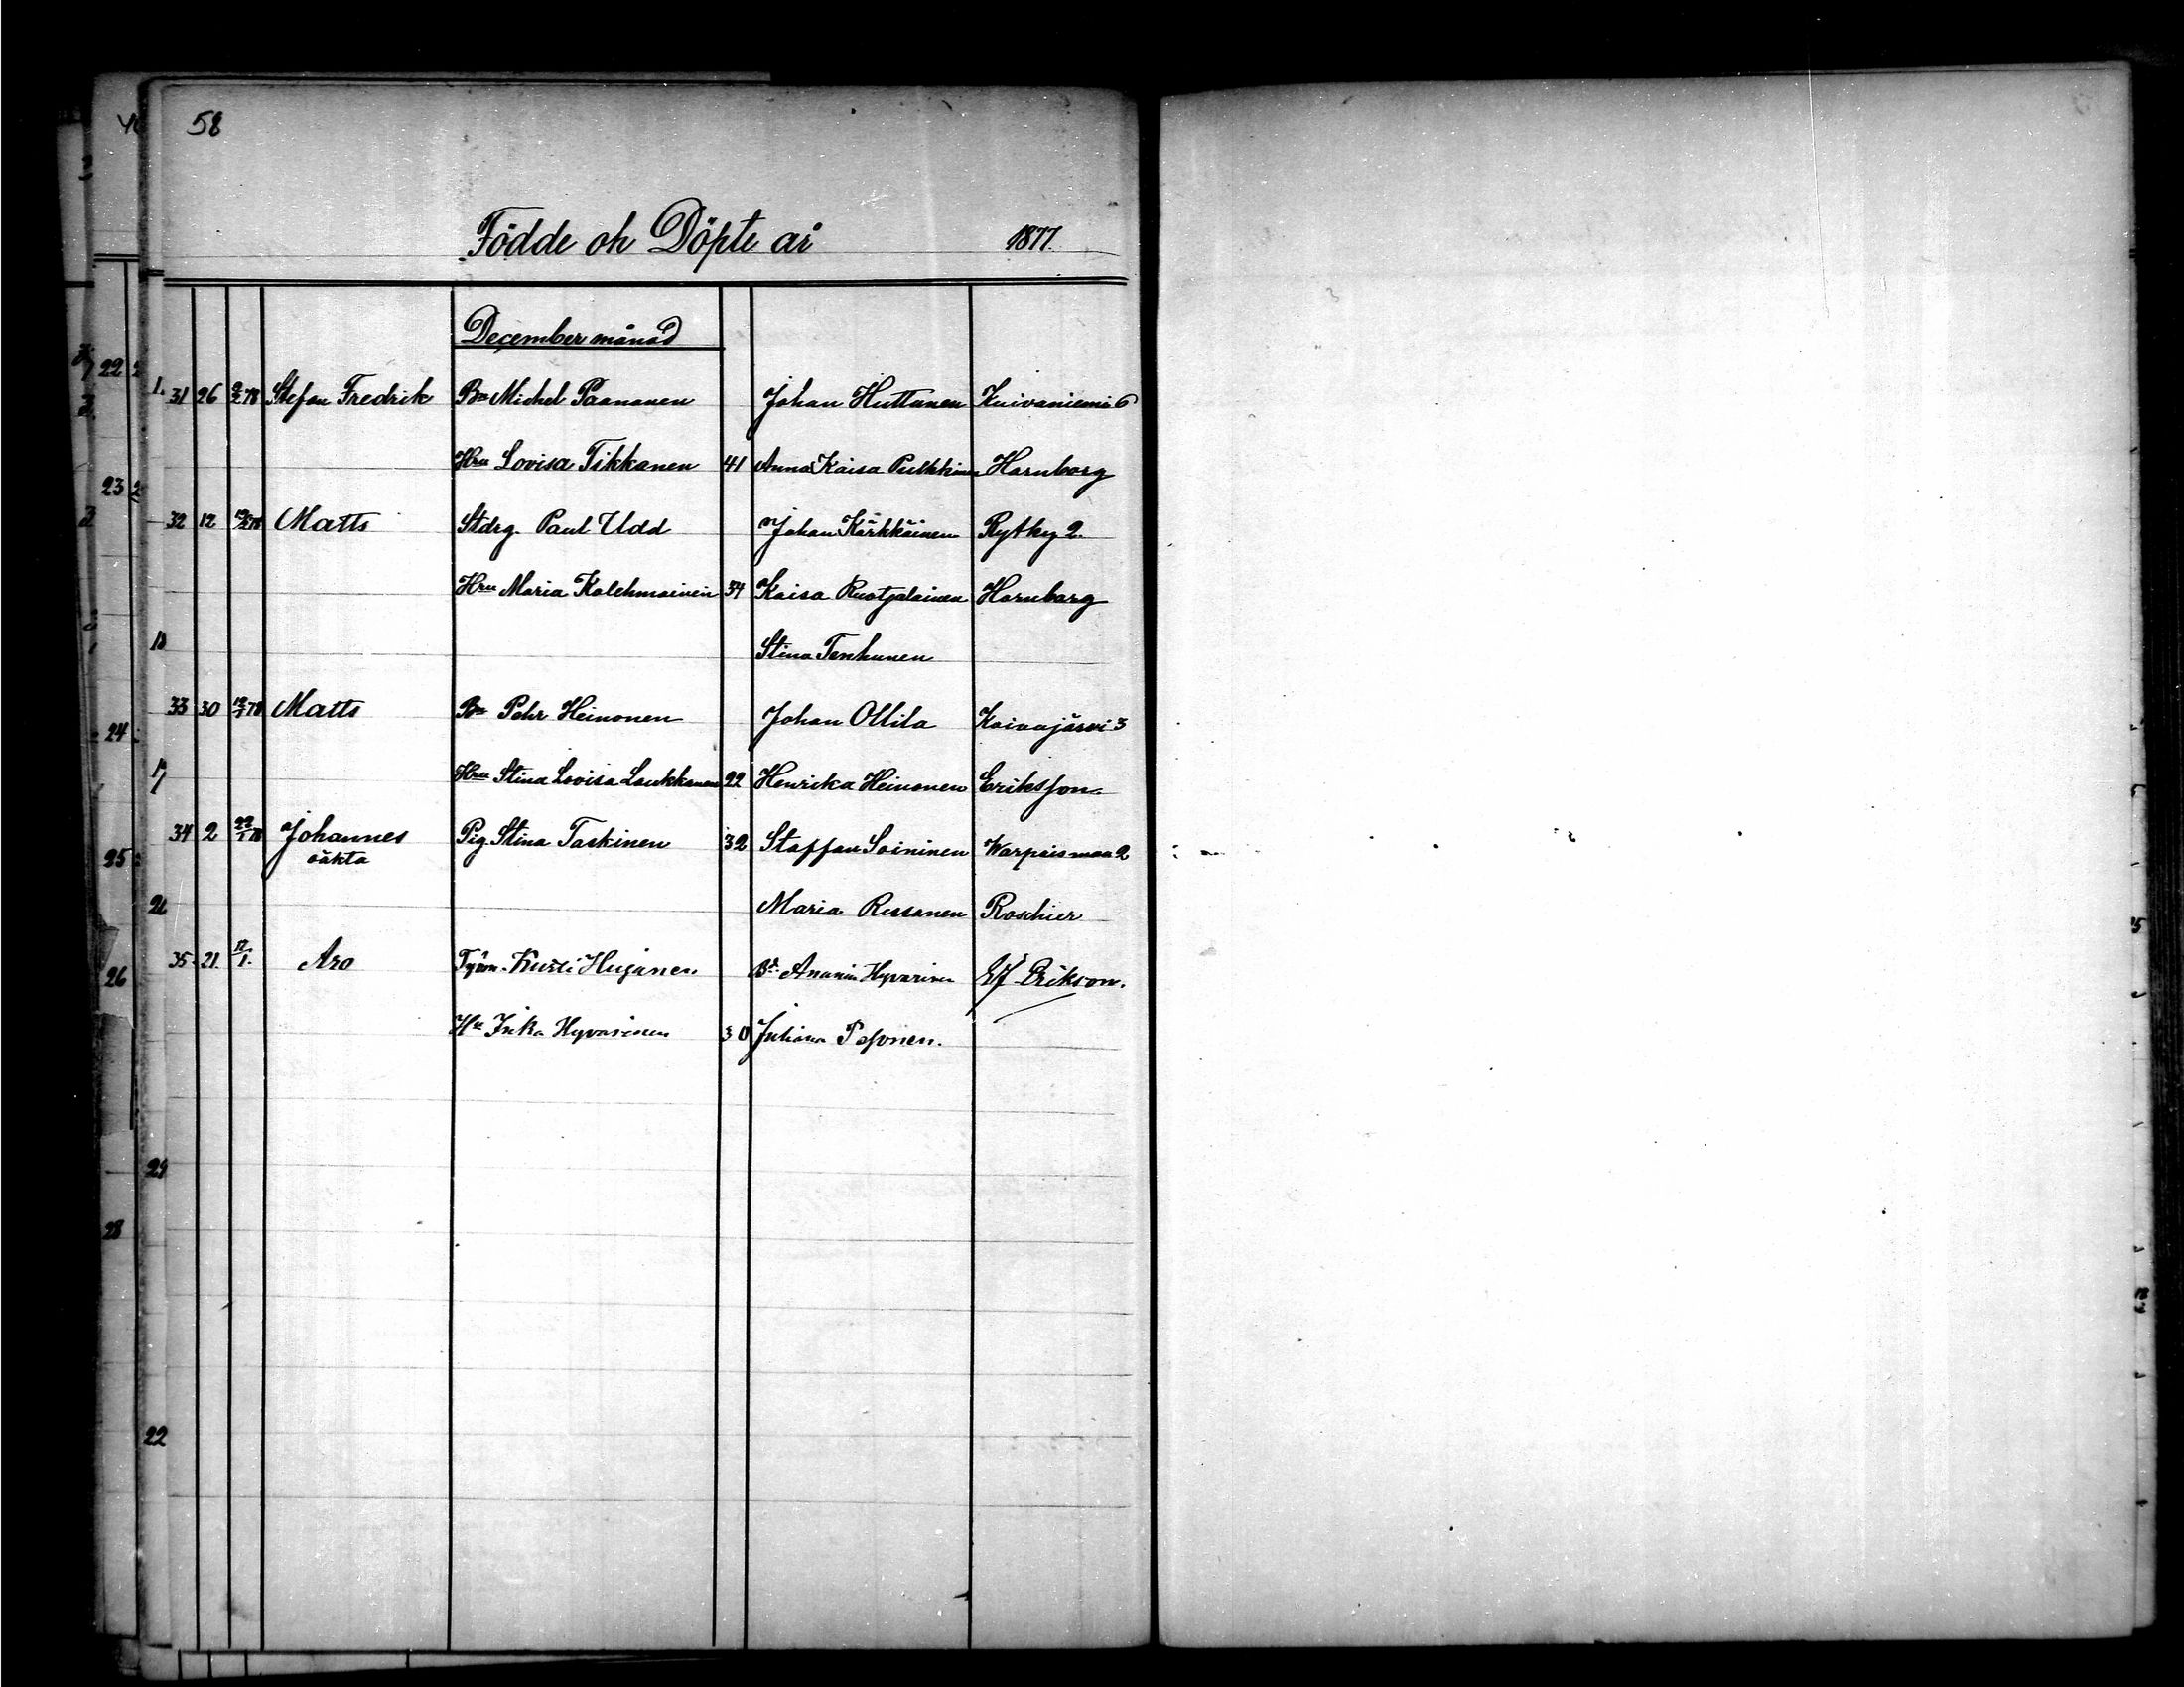 58
Födde oh Döpte år 1877.
December månad
31 26 2/2 78 Stefan Fredrik Bn Michel Paananen Johan Huttunen Kuivaniemi 6
Hru Lovisa Tikkanen 41 Anna Kaisa Pulkkinen Hornborg
32 12 Matts Stdrg. Paul Udd Johan Kärkkäinen Rytky 2.
Hru Maria Kolehmainen 34 Kaisa Ruotsalainen Hornborg
Stina Tenhunen
33 30 Matts Bn Pehr Heinonen Johan Ollila Koivujärvi 3
Hru Stina Lovisa Laukkanen 22 Henrika Heinonen Eriksson
34 2 22/1 78 Johannes Pig. Stina Taskinen 32 Staffan Soininen Warpaismaa 2
oäkta
Maria Rissanen Roschier
35 21. 12/1. Aro Kusti Hujanen Bd Ananias Hyvärinen Erikson.
Hu Inka Hyvärinen 30 Juliana